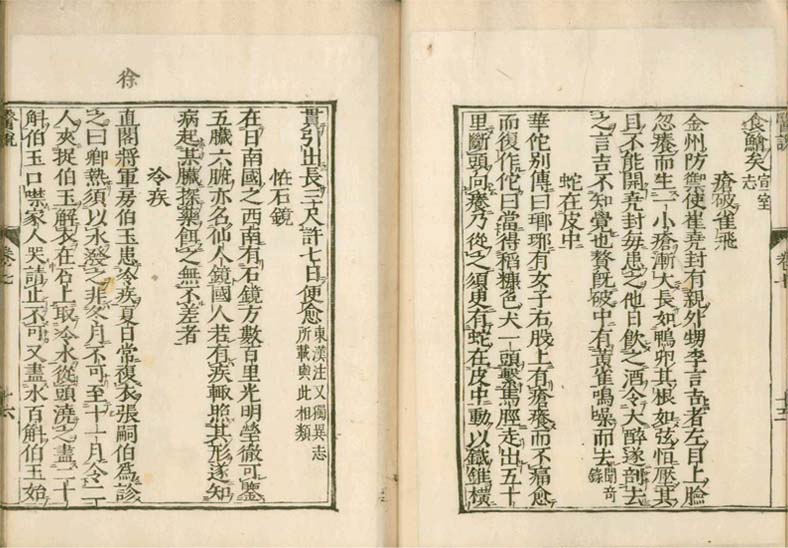 食鱠矣宣室志
瘡破雀飛
金州防禦使崔堯封有親外甥李言吉者左目上瞼
忽癢而生一小瘡漸大長如鴨卵其根如弦恒壓其
目不能開堯封每患之他日飲之酒令大醉遂剖去
之言吉不知覺也贅既破中有黃雀鳴噪而去聞奇錄
蛇在皮中
華佗別傳曰瑯琊有女子右股上有瘡癢而不痛愈
而復作佗曰當得稻糠色犬一頭繫馬脛走出五十
里斷頭向癢乃從之須臾有蛇在皮中動以鐵錐橫
醫說
卷七
貫引出長三尺許七日便愈東漢注又獨異志所載與此相類
恠石鏡
在日南國之西南有石鏡方數百里光明瑩徹可鑒
五臟六腑亦名仙人鏡國人若有疾輒照其形遂知
病起某臟採藥餌之無不差者
冷疾
直閣將軍房伯玉患冷疾夏日常複衣張嗣伯為診
之曰卿熱須以水發之非冬月不可至十一月令二
人夾捉伯玉解衣在石上取冷水從頭澆之盡二十
斛伯玉口噤家人哭請止不可又盡水百斛伯玉始
醫說
卷七
十六
徐